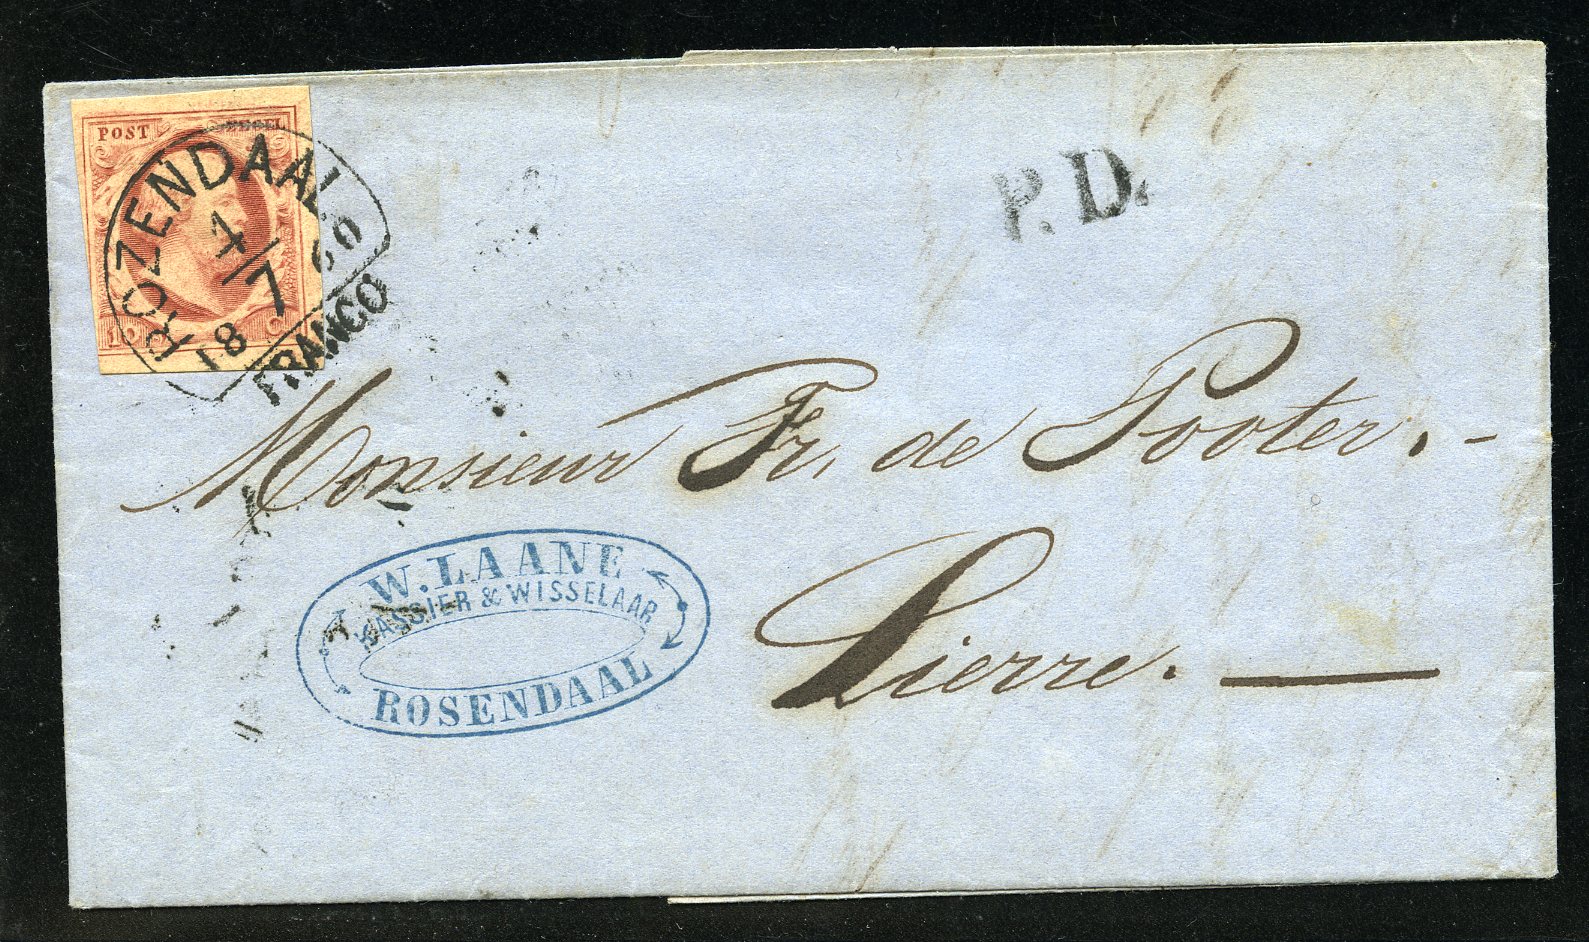 POST
ROZENDAAL
4/7
18 60
FRANCO
10 C
P.D.
Monsieur Fr. de Pooter.-
Lierre. —
W. LAANE
KASSIER & WISSELAAR
ROSENDAAL